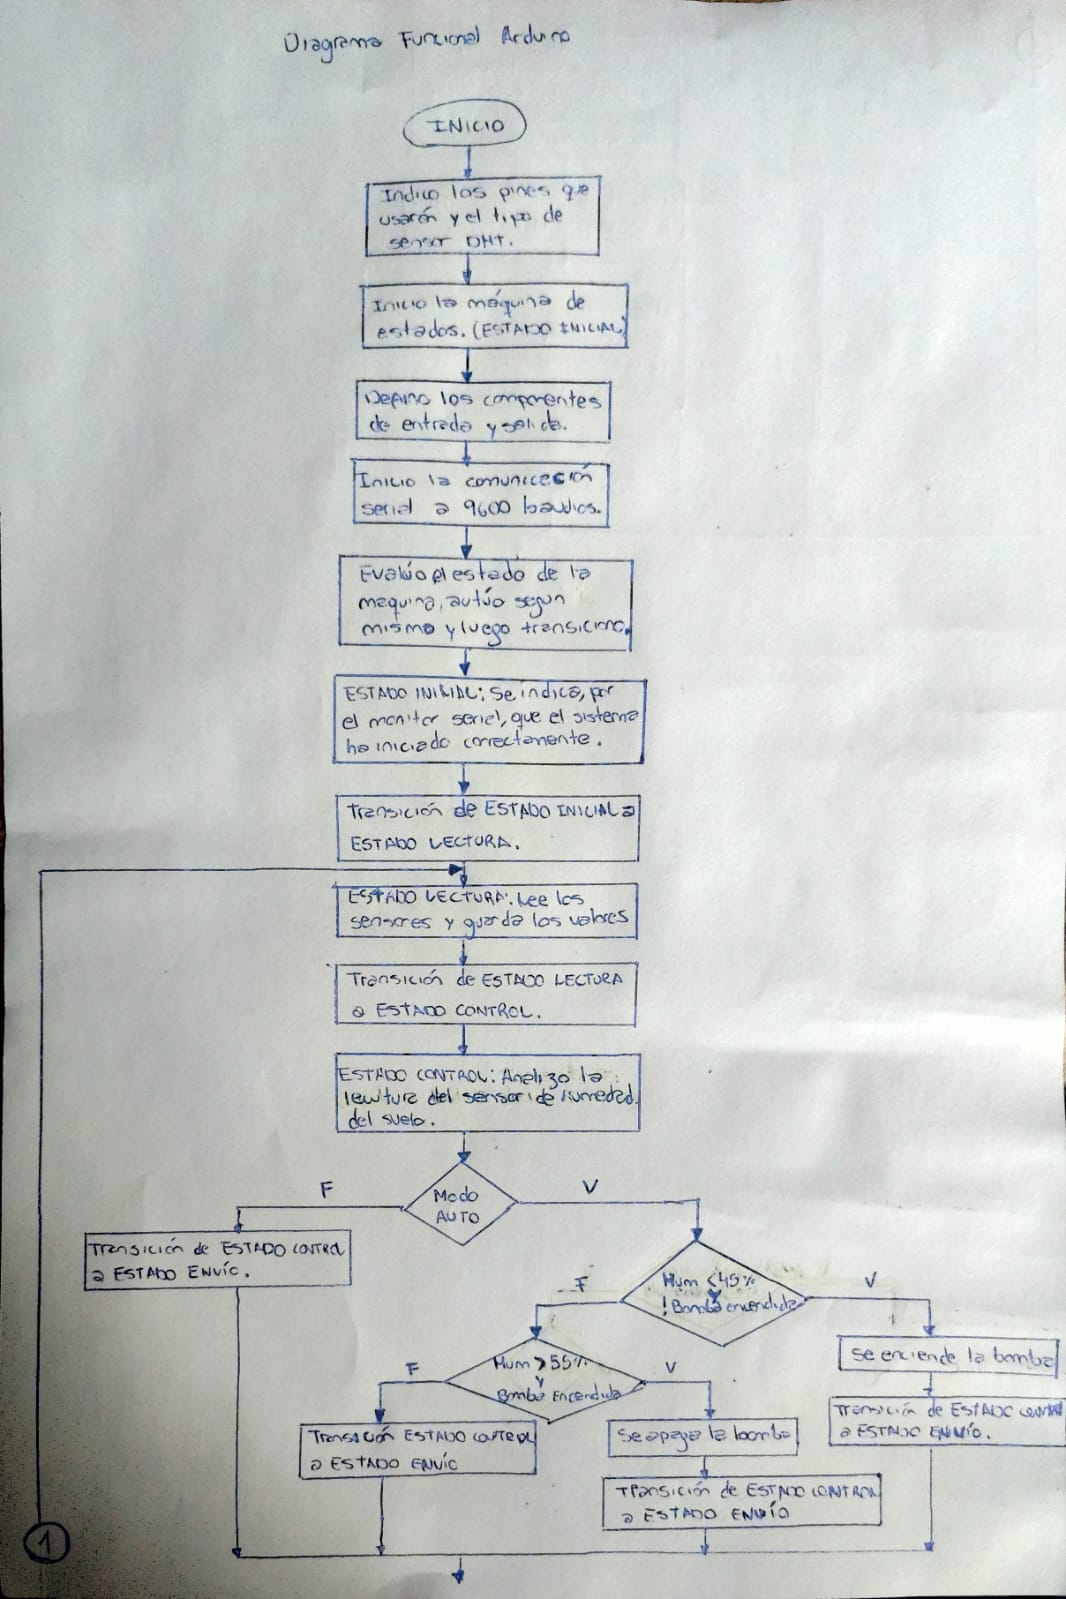 Diagrama Funcional Arduino
INICIO
Indico los pines que
usarán y el tipo de
sensor DHT.
Inicio la máquina de
estados. (ESTADO INICIAL)
Defino los componentes
de entrada y salida.
Inicio la comunicación
serial a 9600 baudios.
Evalúo el estado de la
maquina, actúo segun
mismo y luego transiciona.
ESTADO INICIAL: Se indica, por
el monitor serial, que el sistema
ha iniciado correctamente.
Transición de ESTADO INICIAL a
ESTADO LECTURA.
ESTADO LECTURA: Lee los
sensores y guarda los valores
Transición de ESTADO LECTURA
a ESTADO CONTROL.
ESTADO CONTROL: Analizo la
lectura del sensor de humedad
del suelo.
Modo
AUTO
F
V
Transición de ESTADO CONTROL
a ESTADO ENVÍO.
Hum < 45%
Y
! Bomba encendida
F
V
Hum > 55%
Y
Bomba Encendida
F
V
Se enciende la bomba
Transición de ESTADO CONTROL
a ESTADO ENVÍO.
Transición ESTADO CONTROL
a ESTADO ENVÍO
Se apaga la bomba
Transición de ESTADO CONTROL
a ESTADO ENVÍO
1